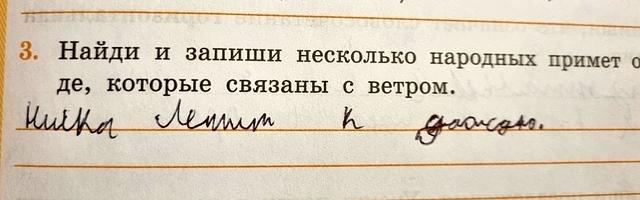 3. Найди и запиши несколько народных примет о
де, которые связаны с ветром.
Ниска Летит к дождю.